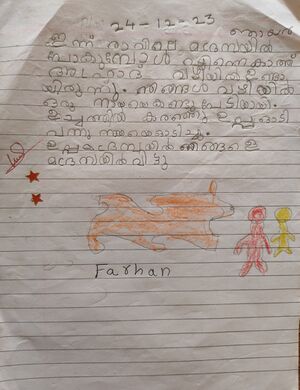 24-12-23
ഇന്ന് രാവിലെ മദ്രസയിൽ
പോകുമ്പോൾ
വഴിയിൽ ഉണ്ടാ
യിരുന്നു. ഞങ്ങൾ വഴിയിൽ
ഒരു നായയെകണ്ടു പേടിയായി.
ഉച്ചത്തിൽ കരഞ്ഞു ഉപ്പ ഓടി
വന്നു നായയെഓടിച്ചു.
ഉപ്പ മദ്രസയിൽ ഞങ്ങളെ
മദ്രസയിൽ വിട്ടു
Farhan